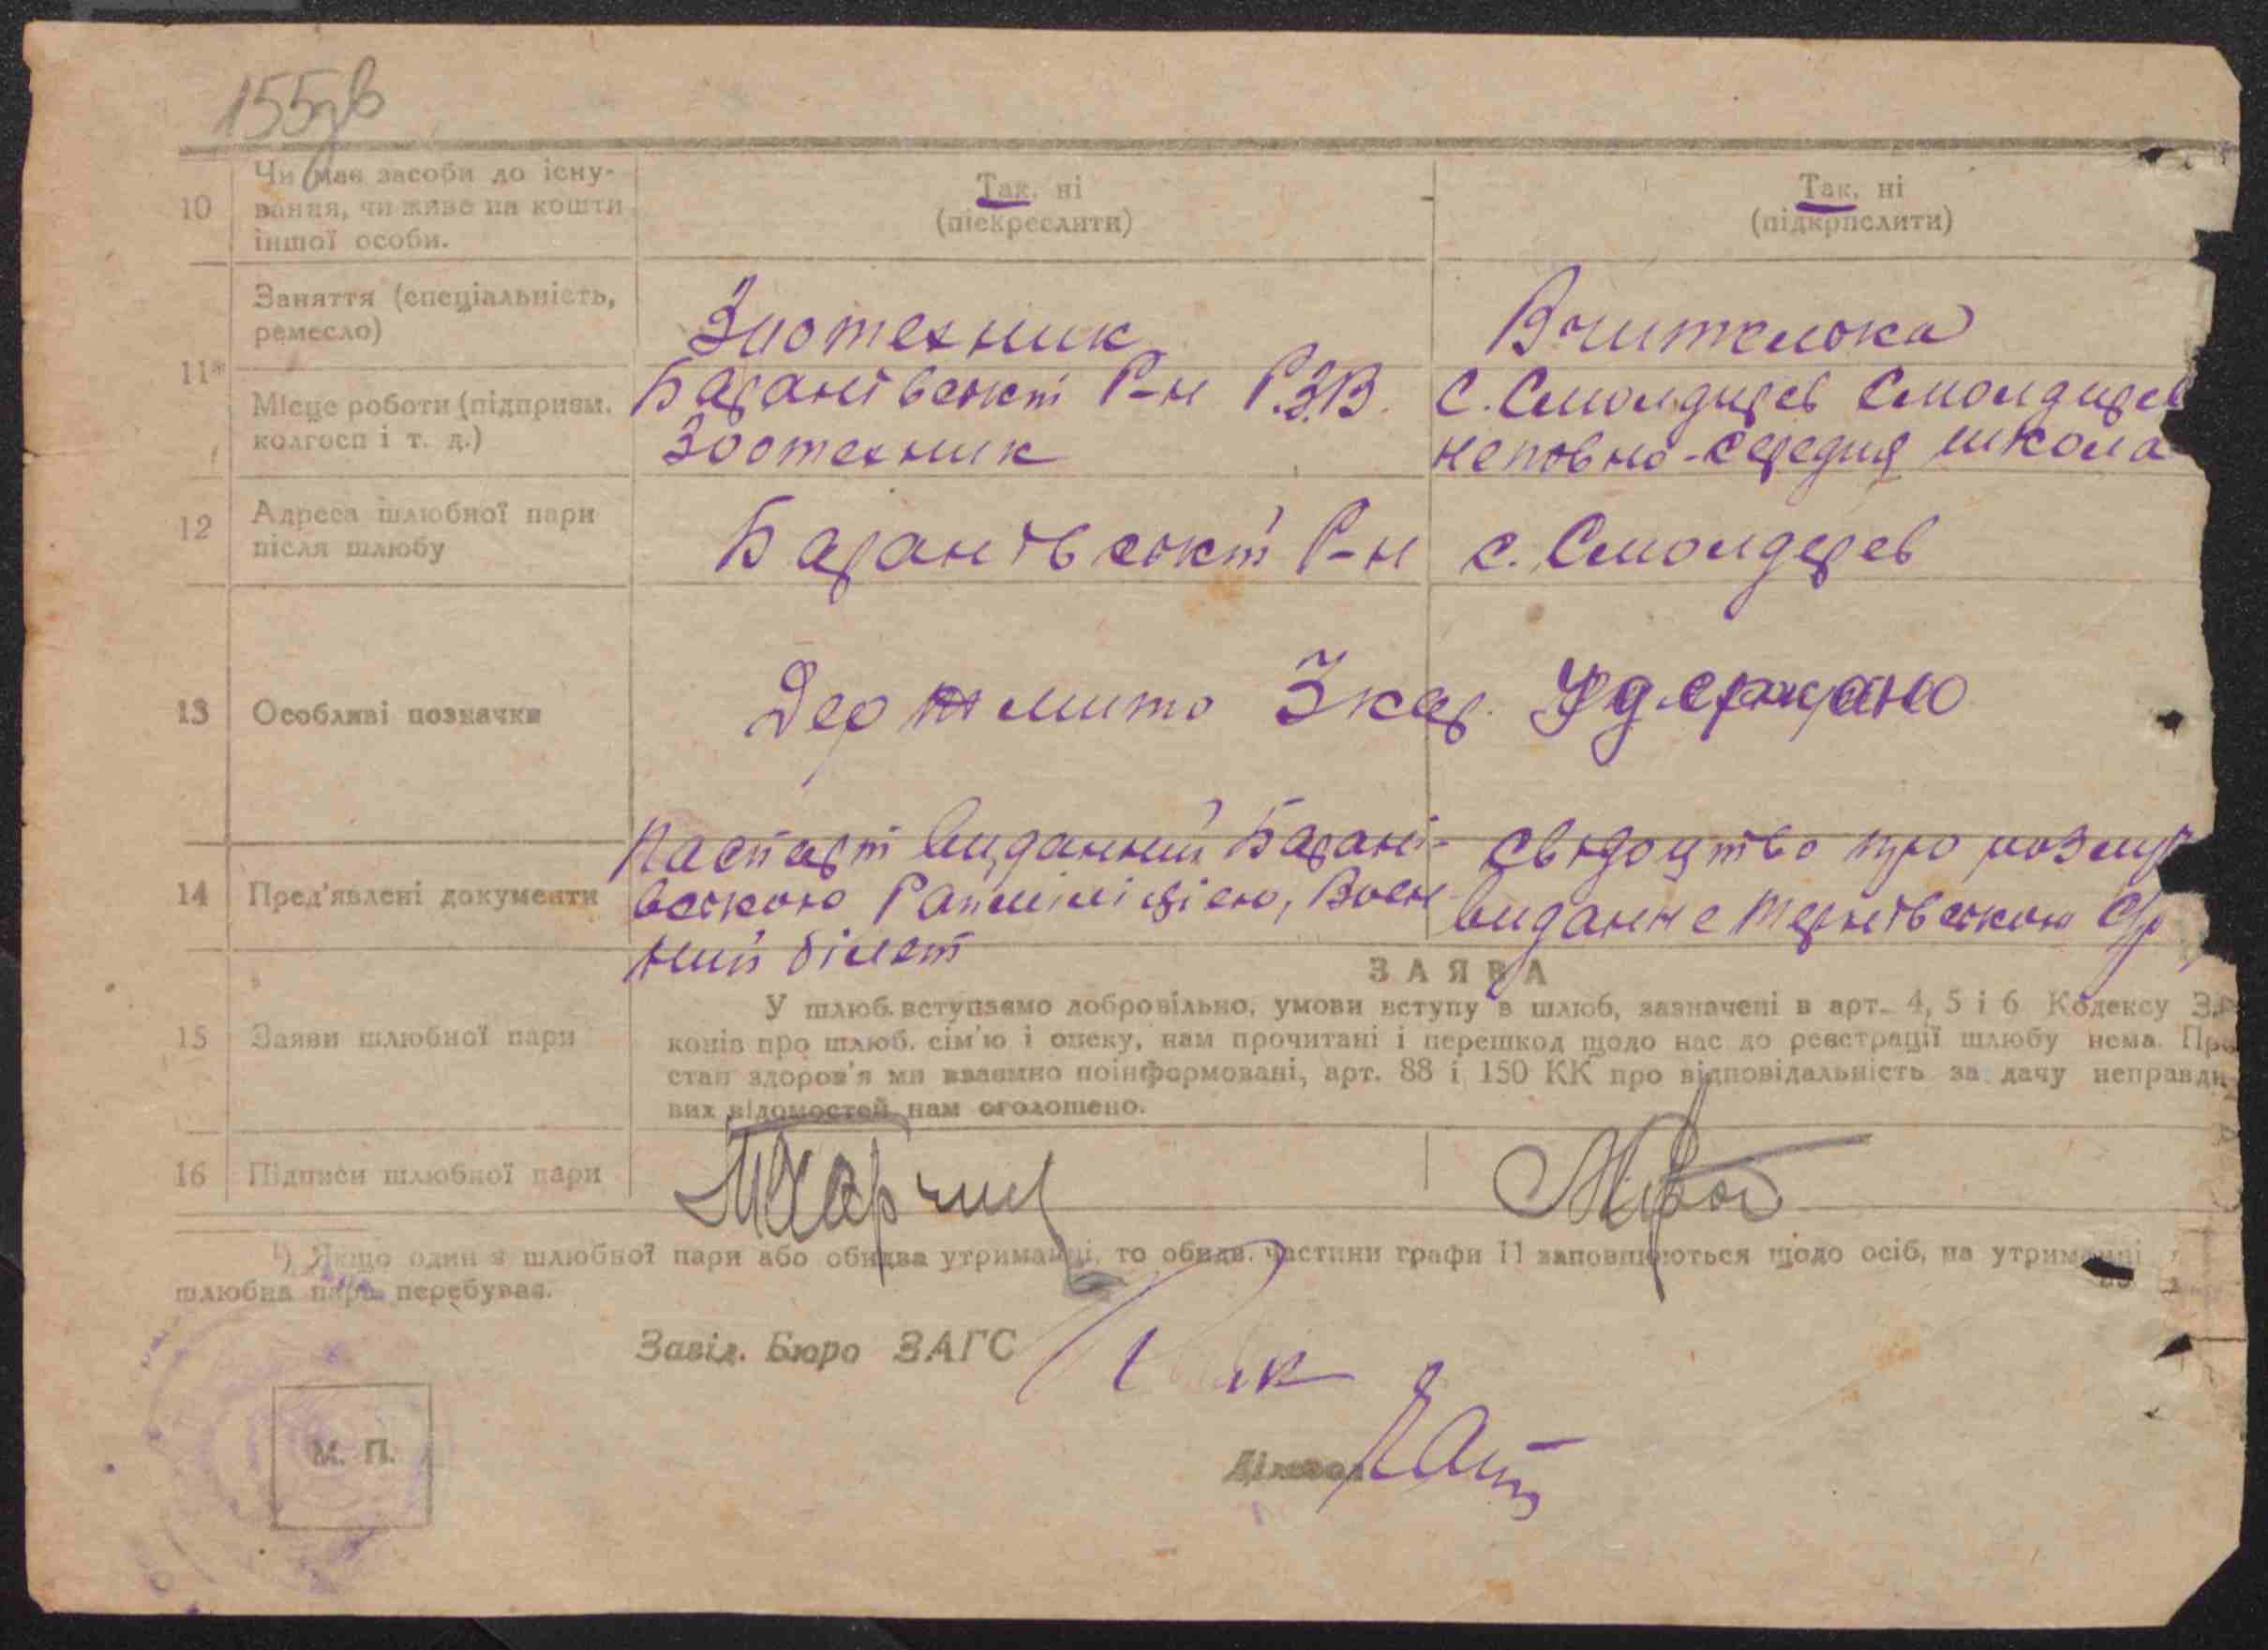 155зв
10 Чи має засоби до існу-
вання, чи живе на кошти
іншої особи.
Так, ні
(піекреслити)
Так, ні
(підкрпслити)
11* Заняття (спеціальність,
ремесло)
Зоотехник
Вчителька
Місце роботи (підприєм.
колгосп і т. д.)
Баранівський Р-н Р.З.В.
Зоотехник
с. Смолдирев Смолдирев
неповно-середня школа
12 Адреса шлюбної пари
після шлюбу
Баранівський Р-н
с. Смолдерев
13 Особливі позначки
Дер мито 3 кар. Удержано
14 Пред'явлені документи
Паспорт виданний Барані-
вською Райміліцією, Воєн-
ний білет
Свідоцтво про
виданне
15 Заяви шлюбної пари
ЗАЯВА
У шлюб. вступаємо добровільно, умови вступу в шлюб, зазначені в арт. 4, 5 і 6 Кодексу За
конів про шлюб. сім'ю і опеку, нам прочитані і перешкод щодо нас до реєстрації шлюбу нема. Про
стан здоров'я ми взаємно поінформовані, арт. 88 і 150 КК про відповідальність за дачу неправди
вих відомостей нам оголошено.
16 Підписи шлюбної пари
¹) Якщо один з шлюбної пари або обидва утриманці, то обидв. частини графи 11 заповнюються щодо осіб, на утриманні
шлюбна пара перебуває.
Завід. Бюро ЗАГС
М. П.
Діловод